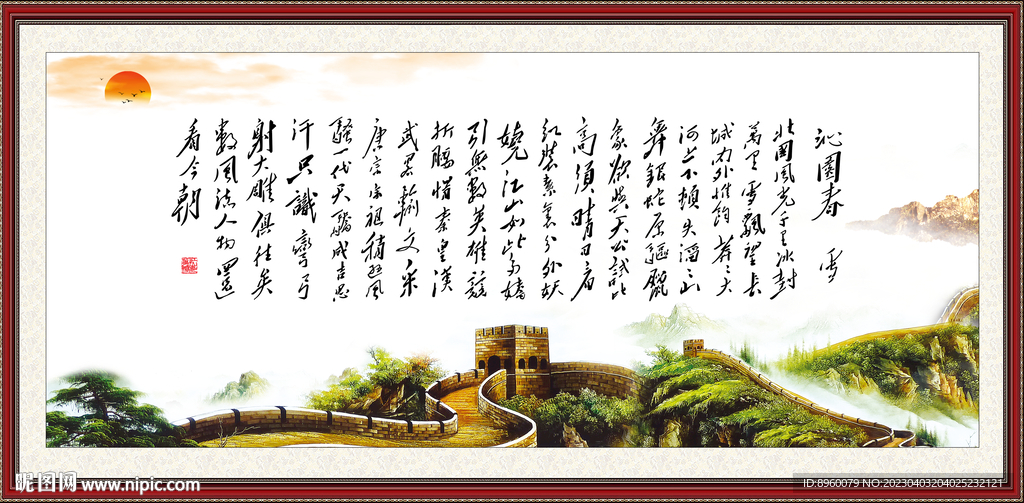 沁園春 雪
北國風光千里冰封
萬里雪飄望長
城内外惟餘莽々大
河上下頓失滔々山
舞銀蛇原驅臘
象欲與天公試比
高須晴日看
紅裝素裹分外妖
嬈江山如此多嬌
引無數英雄競
折腰惜秦皇漢
武畧輸文采
唐宗宋祖稍遜風
騷一代天驕成吉思
汗只識彎弓
射大雕俱往矣
數風流人物還
看今朝
昵图网 www.nipic.com
ID:8960079 NO:20230403204025232121